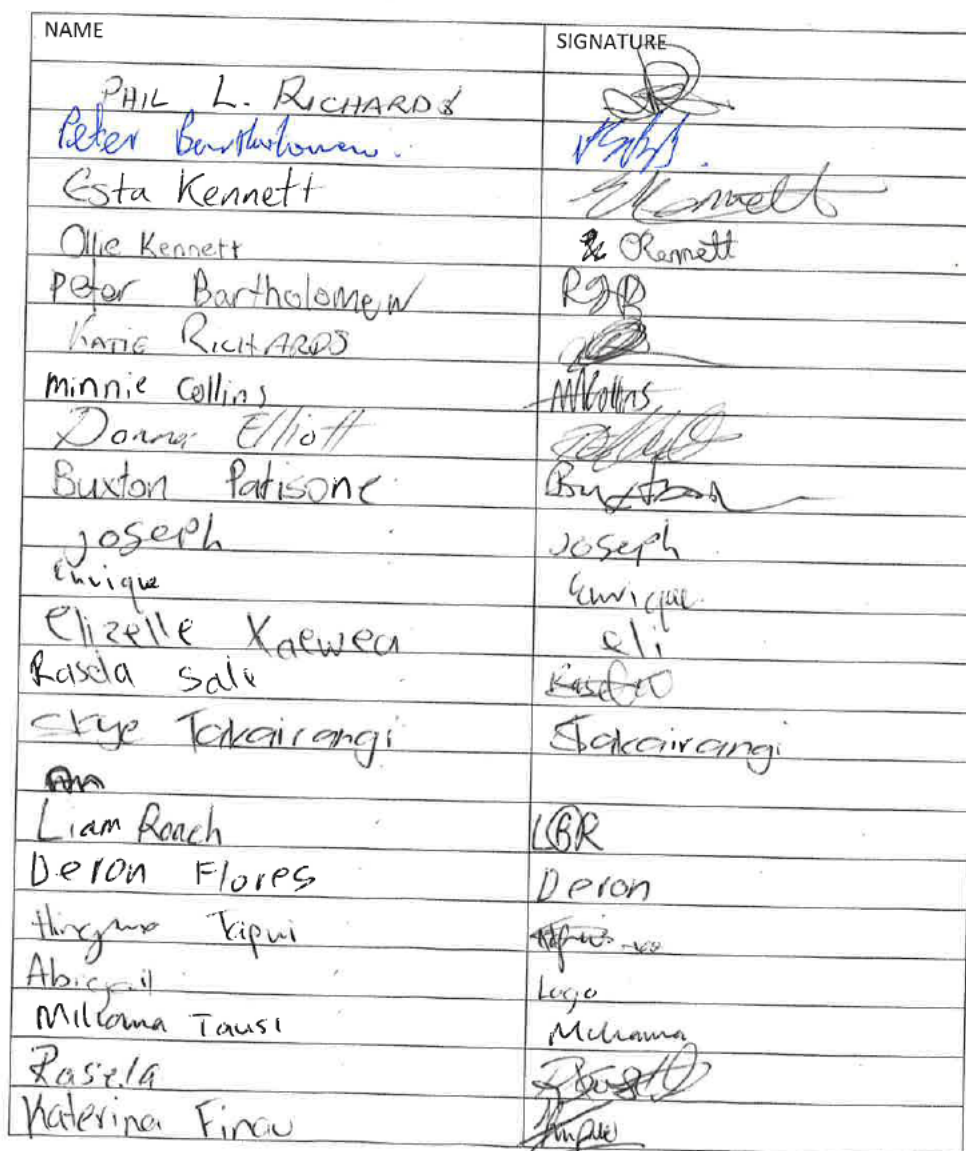 NAME SIGNATURE
PHIL L. RICHARDS
Peter Bartholomew.
Esta Kennett EKennett
Ollie Kennett OKennett
Peter Bartholomew RJB
KATIE RICHARDS
Minnie Collins MKollins
Donna Elliott
Buxton Patisone Buxton
Joseph Joseph
Enrique Enrique
Elizelle Xaewea eli
Sale
Skye Takairangi Stakairangi
Liam Roach LBR
Deron Flores Deron
Tipui
Abigail Logo
Milkama Tausi
Rasela
Katerina Finau